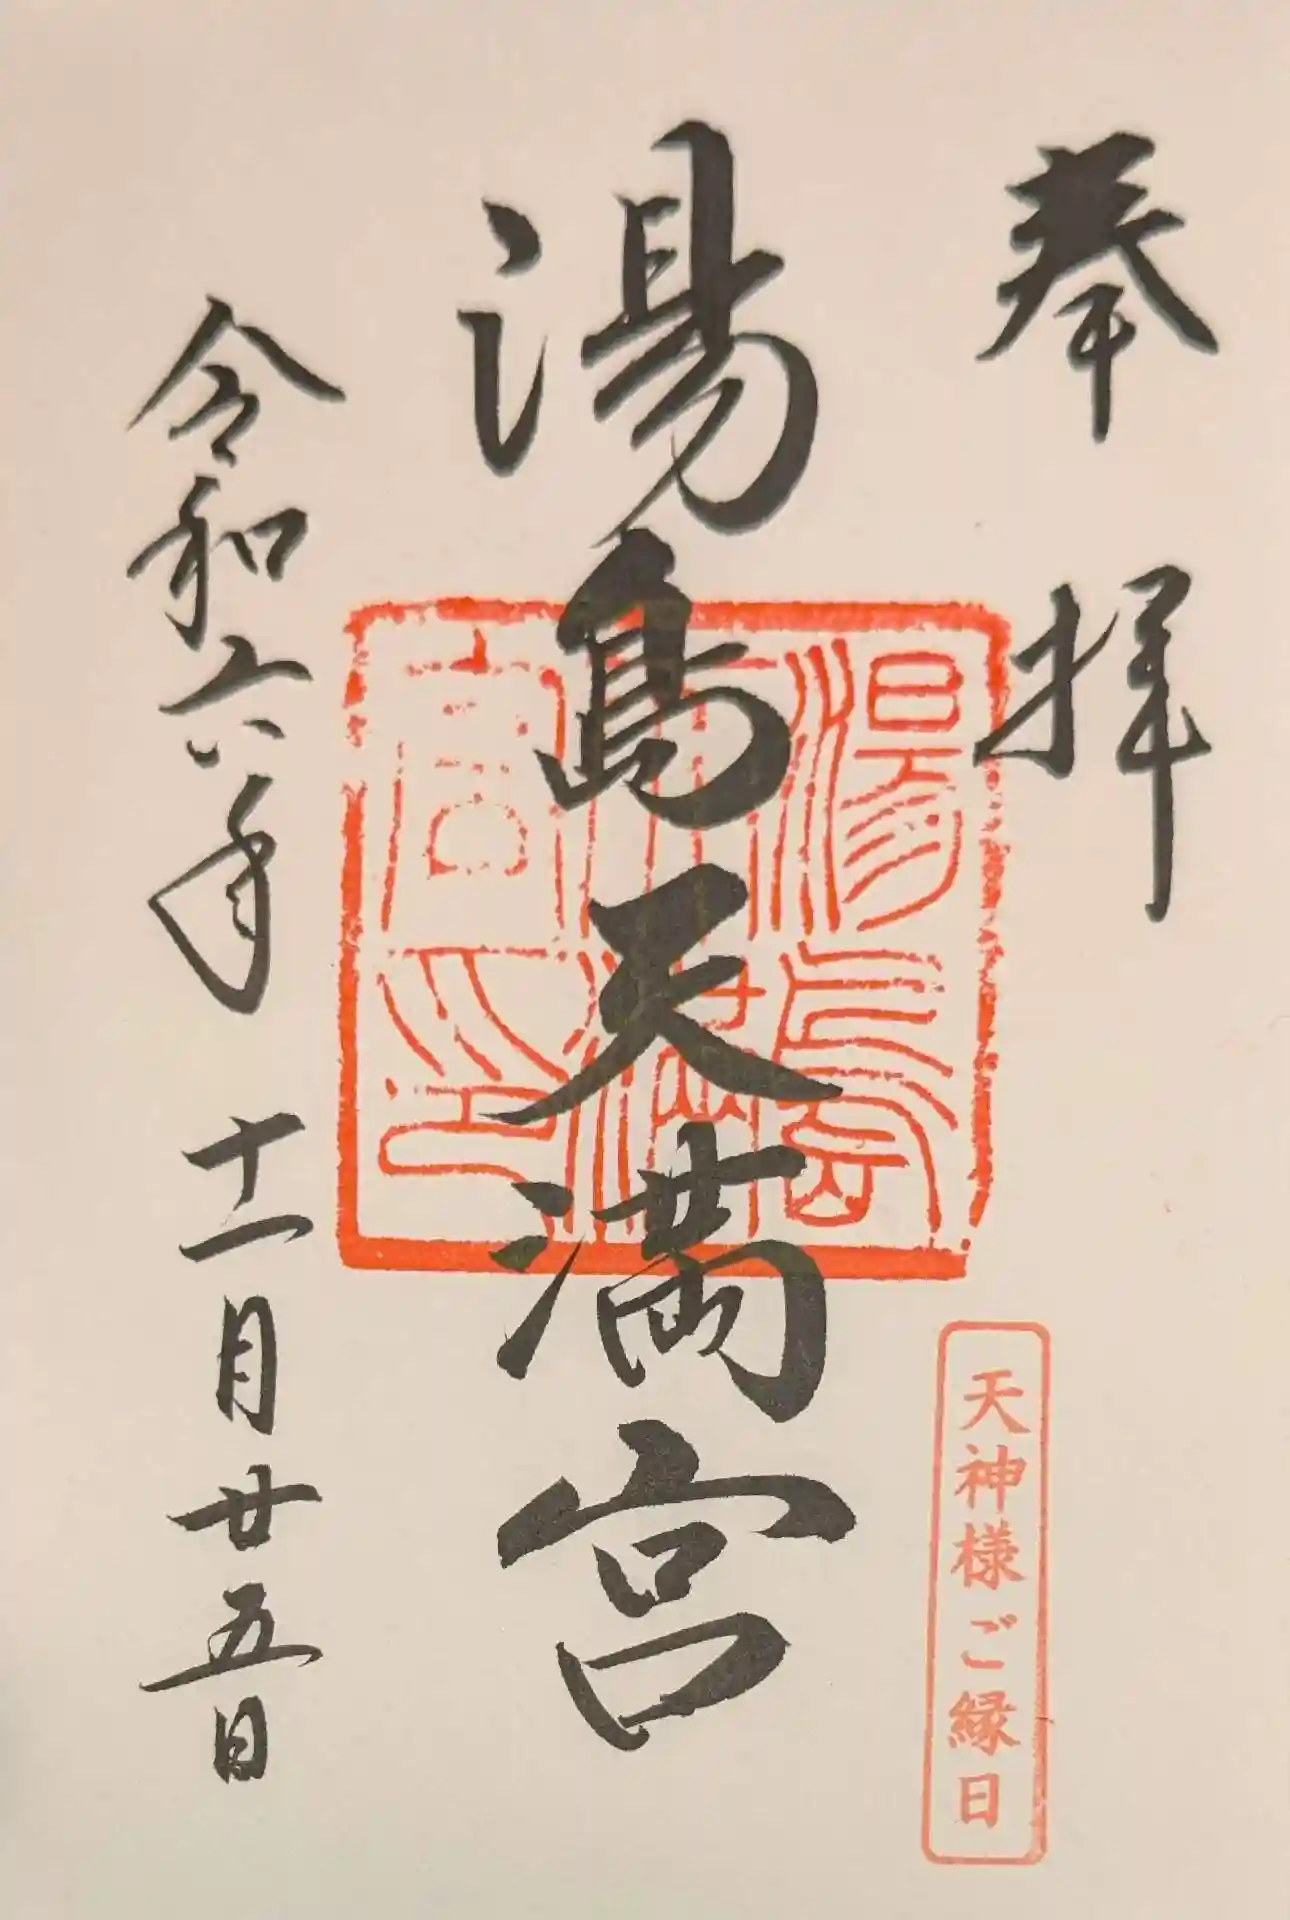 奉拝
湯島天満宮
湯島天満宮印
天神様ご縁日
令和六年十一月廿五日